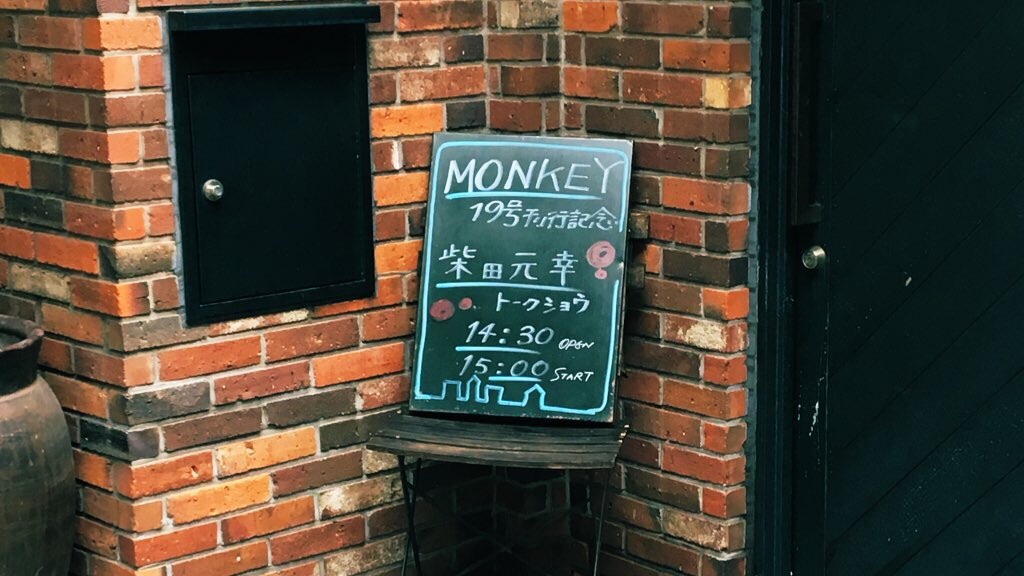 MONKEY
19号刊行記念
柴田元幸
トークショウ
14:30 OPEN
15:00 START